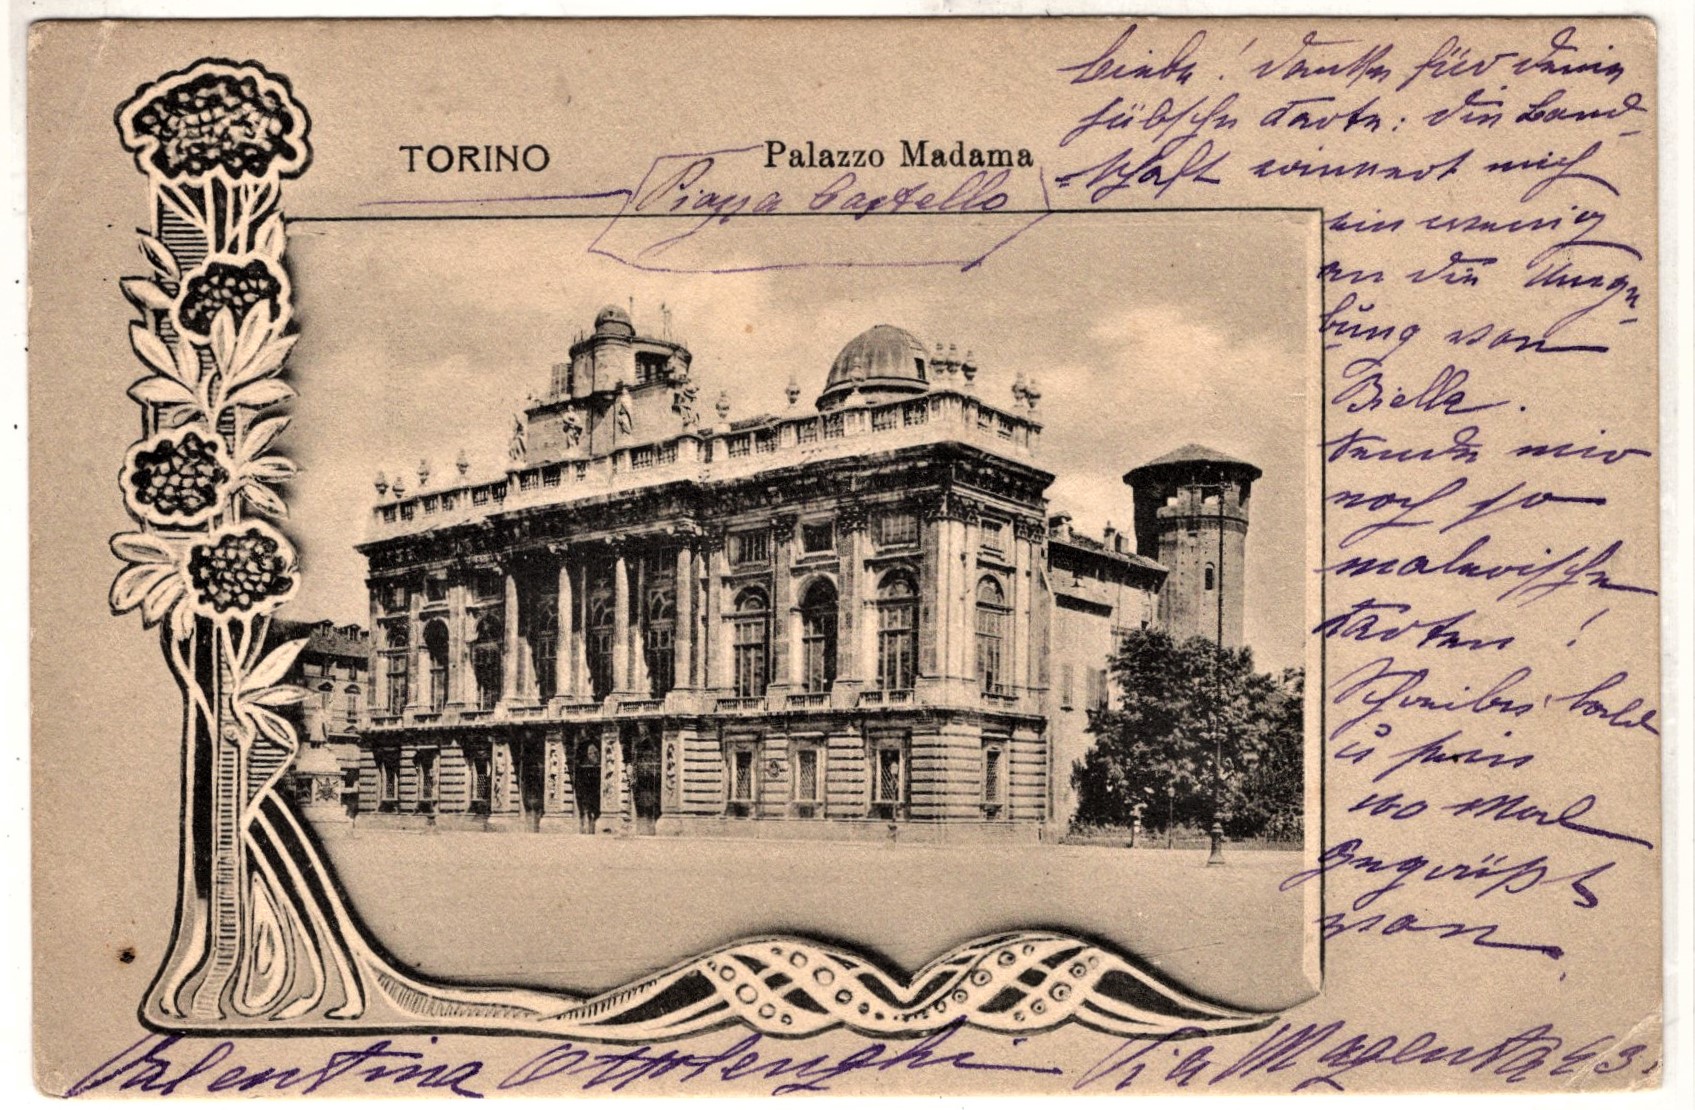 TORINO
Palazzo Madama
Piazza Castello
Liebe! Danke für deine
hübsche Karte: die Land-
schaft erinnert mich
ein wenig
an die Umge-
bung von
Biella.
Sende mir
noch so
malerische
Karten!
Schreibe bald
u sei
Mal
gegrüßt
von
Valentina Ottolenghi Via Magenta 43.